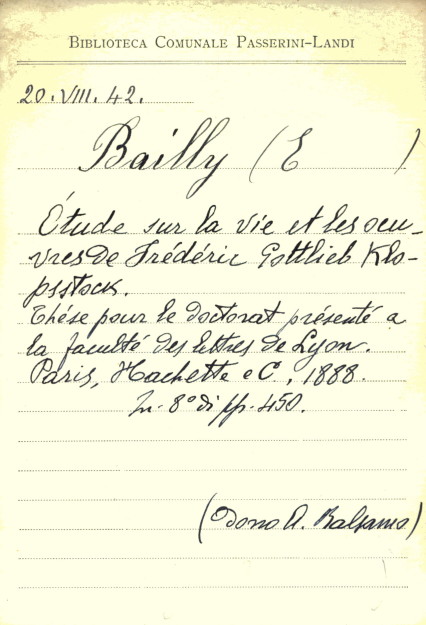 BIBLIOTECA COMUNALE PASSERINI-LANDI
20. VIII. 42.
Bailly (E )
Étude sur la vie et les oeu-
vres de Frédéric Gottlieb Klo-
psstock.
Thése pour le doctorat présenté a
la faculté des lettres de Lyon.
Paris, Hachette e C., 1888.
In-8° di pp. 450.
(Dono A. Balsamo)